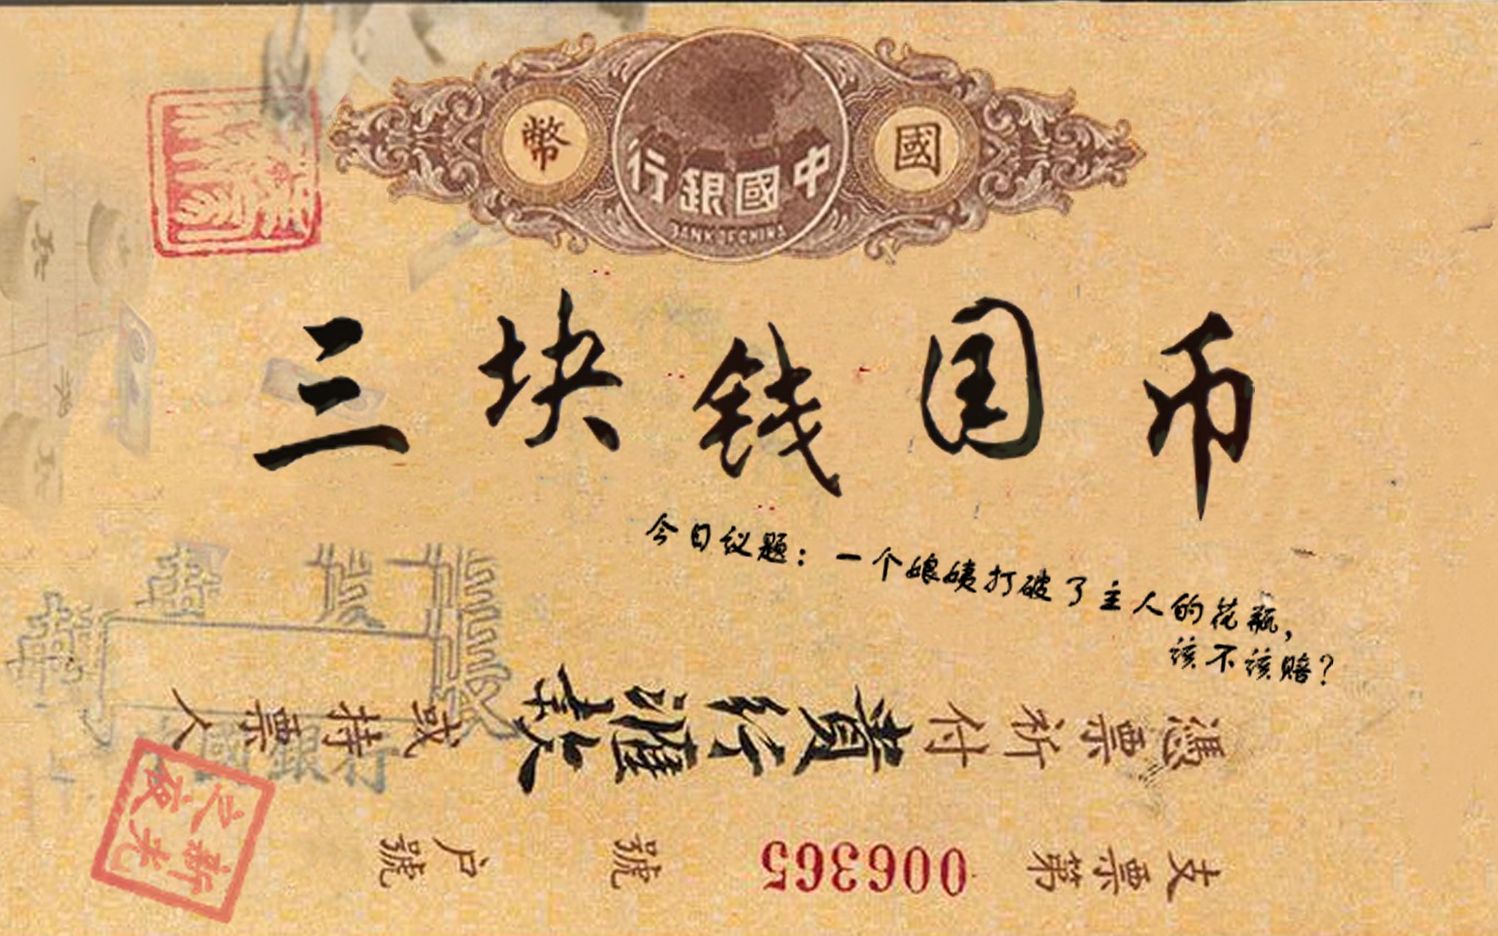 幣 中國銀行 國
BANK OF CHINA
三块钱国币
今日议题：一个娘姨打破了主人的花瓶，
该不该赔？
憑票祈付貴行滙款或持票人
中國銀行
支票第 006365 號 户號